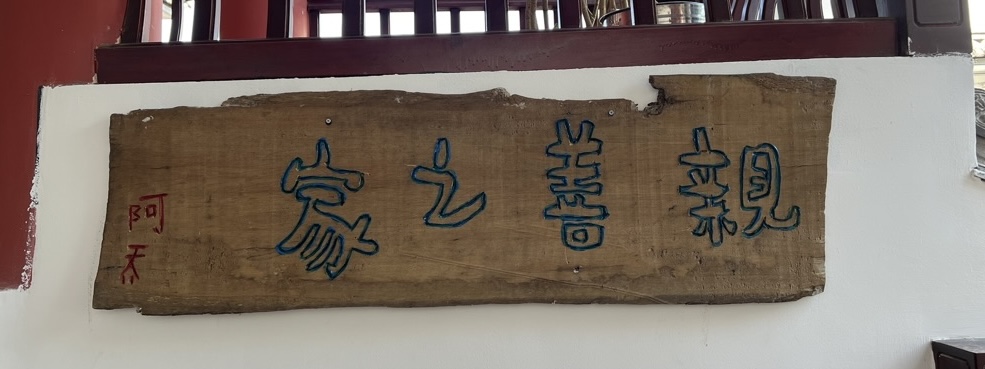 親善之家
阿